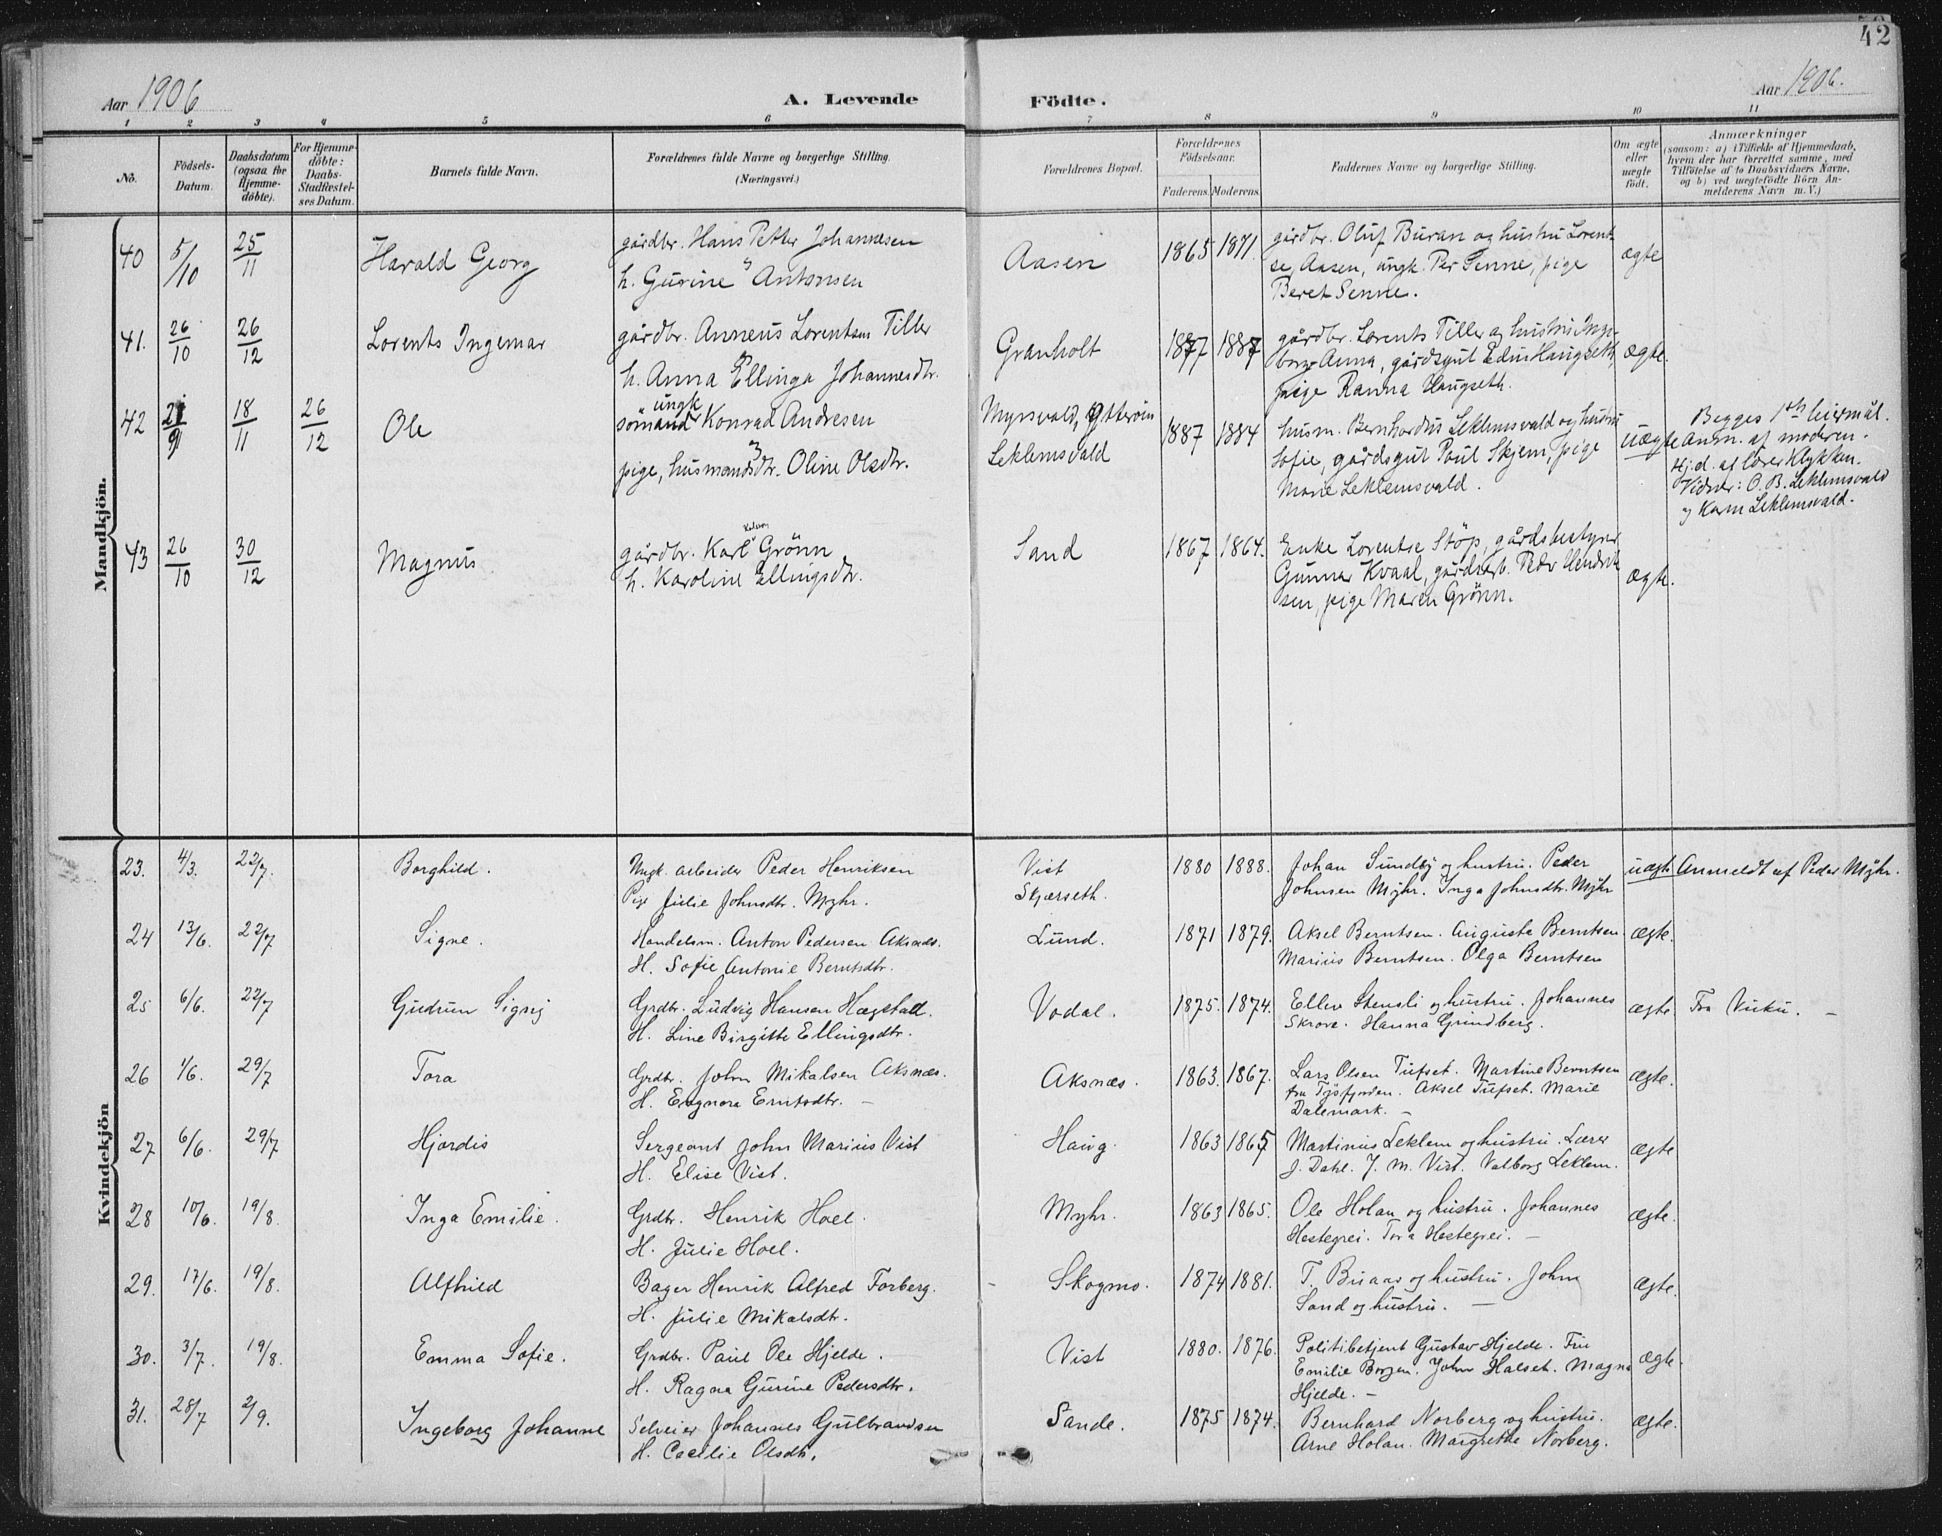 42
Aar 1906
A. Levende Födte.
Aar 1906.
1 2 3 4 5 6 7 8 9 10 11
No.
Födsels-
Datum.
Daabsdatum
(ogsaa for
Hjemme-
döbte).
For Hjemme-
döbte:
Daabs-
Stadfæstel-
ses Datum.
Barnets fulde Navn.
Forældrenes fulde Navne og borgerlige Stilling.
(Næringsvei.)
Forældrenes Bopæl.
Forældrenes
Födselsaar.
Faderens. Moderens.
Faddernes Navne og borgerlige Stilling.
Om ægte
eller
uægte
født.
Anmærkninger
(saasom: a) i Tilfælde af Hjemmedaab,
hvem der har forrettet samme, med
Tilföielse af to Daabsvidners Navne,
og b) ved uægtefödte Börn An-
melderens Navn m. V.)
Mandkjön.
40 5/10 25/11 Harald Georg
gårdbr. Hans Petter Johannesen
h. Gurine Antonsen
Aasen 1865 1871.
gårdbr. Oluf Buran og hustru Lorent-
se, Aasen, ungk. Per Senne, pige
Beret Senne.
ægte
41. 26/10 26/12 Lorents Ingemar
gårdbr. Anneus Lorentsen Tiller
h. Anna Ellinga Johannesdtr.
Granholt 1877 1887
gårdbr. Lorents Tiller og hustru Inge-
borg Anna, gårdsgut Edin Haugseth,
pige Ranna Haugseth.
ægte.
42 21/9 18/11 26/12 Ole
ungk
sömand Konrad Andresen
pige, husmandsdtr. Oline Olsdtr.
Myrsvald, Ytterøen
Leklemsvald
1887 1884
husm. Bernhardus Leklemsvald og hustru
Sofie, gårdsgut Paul Skjem, pige
Marie Leklemsvald.
uægte
Begges 1ste leiermål.
Anm. af moderen.
Hj.d. af lærer Klykken.
Vidner: O. B. Leklemsvald
og Karen Leklemsvald.
43 26/10 30/12 Magnus
gårdbr. Karl Grönn
h. Karoline Ellingsdtr.
Sand 1867 1864.
Enke Lorentse Stöp, gårdsbestyrer
Gunnar Kvaal, gårdarb. Peder Hendrik-
sen, pige Maren Grönn.
ægte.
Kvindekjön
23. 4/3. 22/7. Borghild.
Ungk. arbeider Peder Henriksen
Pige Julie Johnsdtr. Myhr.
Vist
Skjærseth.
1880 1888.
Johan Sundby og hustru. Peder
Johnsen Myhr. Inga Johnsdtr. Myhr
uægte Anmeldt af Peder Myhr.
24 13/6. 22/7 Signe.
Handelsm. Anton Pedersen Aksnæs.
H. Sofie Antonie Berntsdtr.
Lund. 1871 1879.
Aksel Berntsen. Augusta Berntsen
Marius Berntsen. Olga Berntsen
ægte.
25 6/6. 22/7 Gudrun Signij
Grdbr. Ludvig Hansen Hægstad.
H. Line Birgitte Ellingsdtr.
Vodal. 1875. 1874.
Ellev Stensli og hustru. Johannes
Skrove. Hanna Grindberg.
ægte Fra Vuku. —
26 4/6. 29/7 Tora
Grdbr. John Mikalsen Aksnæs.
H. Engnora Erntsdtr. —
Aksnæs. 1863. 1867.
Lars Olsen Tufset. Martine Berntsen
fra Tysfjorden. Aksel Tufset. Marie
Dalemark. —
ægte.
27 6/6. 29/7 Hjørdis
Sergeant John Marius Vist
H. Elise Vist.
Haug. 1863 1865
Martinius Leklem og hustru. Lærer
J. Dahl. J. M. Vist. Valborg Leklem.
ægte
28 10/6. 19/8. Inga Emilie.
Grdbr. Henrik Hoel.
H. Julie Hoel.
Myhr. 1863 1865.
Ole Holan og hustru. Johannes
Hestegrei. Tora Hestegrei. —
ægte.
29. 17/6. 19/8. Alfhild
Bager Henrik Alfred Forberg.
H. Julie Mikalsdtr.
Skogmo. 1874 1881.
T. Buaas og hustru. John
Sand og hustru. —
ægte.
30. 3/7. 19/8. Emma Sofie.
Grdbr. Paul Ole Hjelde.
H. Ragna Gurine Pedersdtr.
Vist 1880. 1876.
Politibetjent Gustav Hjelde. Fru
Emilie Borgen. John Halset. Magna
Hjelde. —
ægte.
31. 28/7 2/9. Ingeborg Johanne
Selveier Johannes Gulbrandsen
H. Cecilie Olsdtr.
Sande. 1875 1874.
Bernhard Norberg og hustru.
Arne Holan. Margrethe Norberg.
ægte.